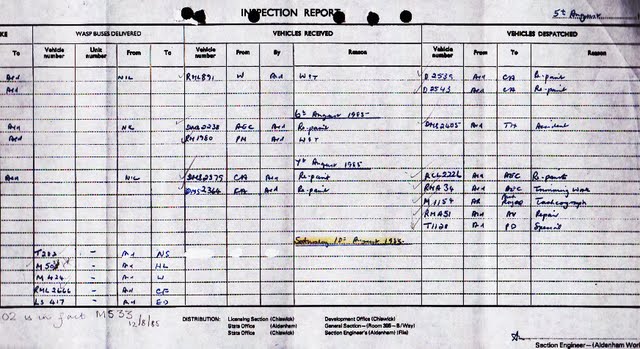 INSPECTION REPORT
5th August
KE WASP BUSES DELIVERED VEHICLES RECEIVED VEHICLES DESPATCHED
To Vehicle number Unit number From To Vehicle number From By Reason Vehicle number From To Reason
Ard NIL RML891 W Ard WST D2539 Ard CA Re-paint
Ard D2543 Ard CA Re-paint
6th August 1985
Ard NIL DMS2238 AEC Ard Re-paint DMS2405 Ard TH Accident
Ard RM1980 PM Ard WST
7th August 1985
Ard NIL DMS2375 CA Ard Re-paint RCL2226 Ard AEC Re-paint
DMS2364 CA Ard Re-paint RMA34 Ard AEC Trimming Work
M1154 AR Park Royal Tachograph
RMA51 Ard AV Repair
T1120 Ard PD Special
Saturday 10th August 1985
T202 - Ard NS
M502 - Ard HL
M424 - Ard W
RML2666 - Ard CF
LS417 - Ard ED
02 is in fact M533 12/8/85
DISTRIBUTION: Licensing Section (Chiswick) Development Office (Chiswick)
Stats Office (Aldenham) General Section—(Room 395—B/Way)
Stats Office (Chiswick) Section Engineer's (Aldenham) (File)
Section Engineer—(Aldenham Wor